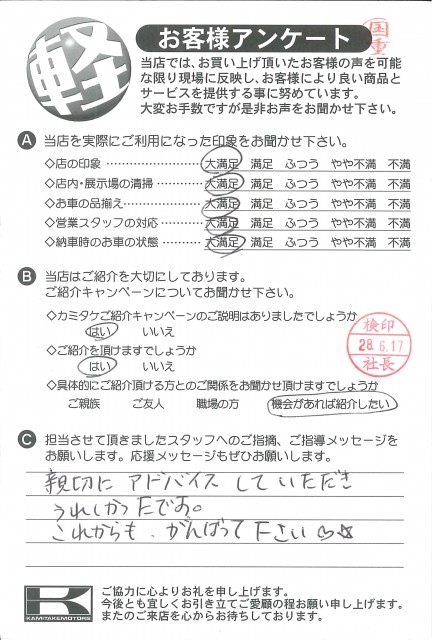 軽
お客様アンケート
国重
当店では、お買い上げ頂いたお客様の声を可能
な限り現場に反映し、お客様により良い商品と
サービスを提供する事に努めています。
大変お手数ですが是非お声をお聞かせ下さい。
A 当店を実際にご利用になった印象をお聞かせ下さい。
◇店の印象 ………………… 大満足 満足 ふつう やや不満 不満
◇店内・展示場の清掃 ………… 大満足 満足 ふつう やや不満 不満
◇お車の品揃え ……………… 大満足 満足 ふつう やや不満 不満
◇営業スタッフの対応 ………… 大満足 満足 ふつう やや不満 不満
◇納車時のお車の状態 ………… 大満足 満足 ふつう やや不満 不満
B 当店はご紹介を大切にしております。
ご紹介キャンペーンについてお聞かせ下さい。
◇カミタケご紹介キャンペーンのご説明はありましたでしょうか
はい いいえ
◇ご紹介を頂けますでしょうか
はい いいえ
検印
28.6.17
社長
◇具体的にご紹介頂ける方とのご関係をお聞かせ頂けますでしょうか
ご親族 ご友人 職場の方 機会があれば紹介したい
C 担当させて頂きましたスタッフへのご指摘、ご指導メッセージを
お願いします。応援メッセージもぜひお願いします。
親切に アドバイス して いただき
うれしかったです。
これからも、がんばって下さい♡☆
K
KAMITAKEMOTORS
ご協力に心よりお礼を申し上げます。
今後とも宜しくお引き立てご愛顧の程お願い申し上げます。
またのご来店を心からお待ちしております。